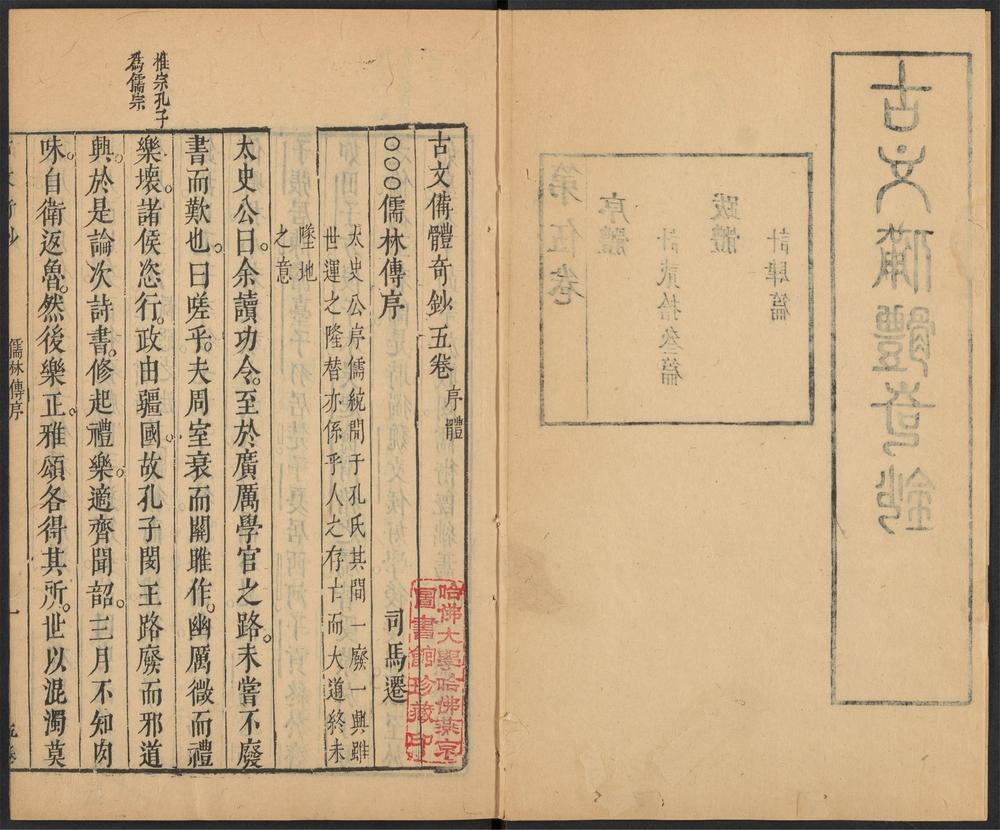 古文備體奇鈔
第伍卷
序體
計貳拾叁篇
跋體
計肆篇
古文備體奇鈔五卷 序體
哈佛大學哈佛燕京
圖書館珍藏印
○○○儒林傳序 司馬遷
太史公序儒統開于孔氏其間一廢一興雖
世運之隆替亦係乎人之存亡而大道終未
墜地
之意
太史公曰。余讀功令。至於廣厲學官之路。未嘗不廢
書而歎也。曰嗟乎。夫周室衰而關雎作。幽厲微而禮
樂壞。諸侯恣行。政由疆國。故孔子閔王路廢而邪道
興。於是論次詩書。修起禮樂。適齊聞韶。三月不知肉
味。自衛返魯。然後樂正。雅頌各得其所。世以混濁莫
惟宗孔子
為儒宗
儒林傳序
一